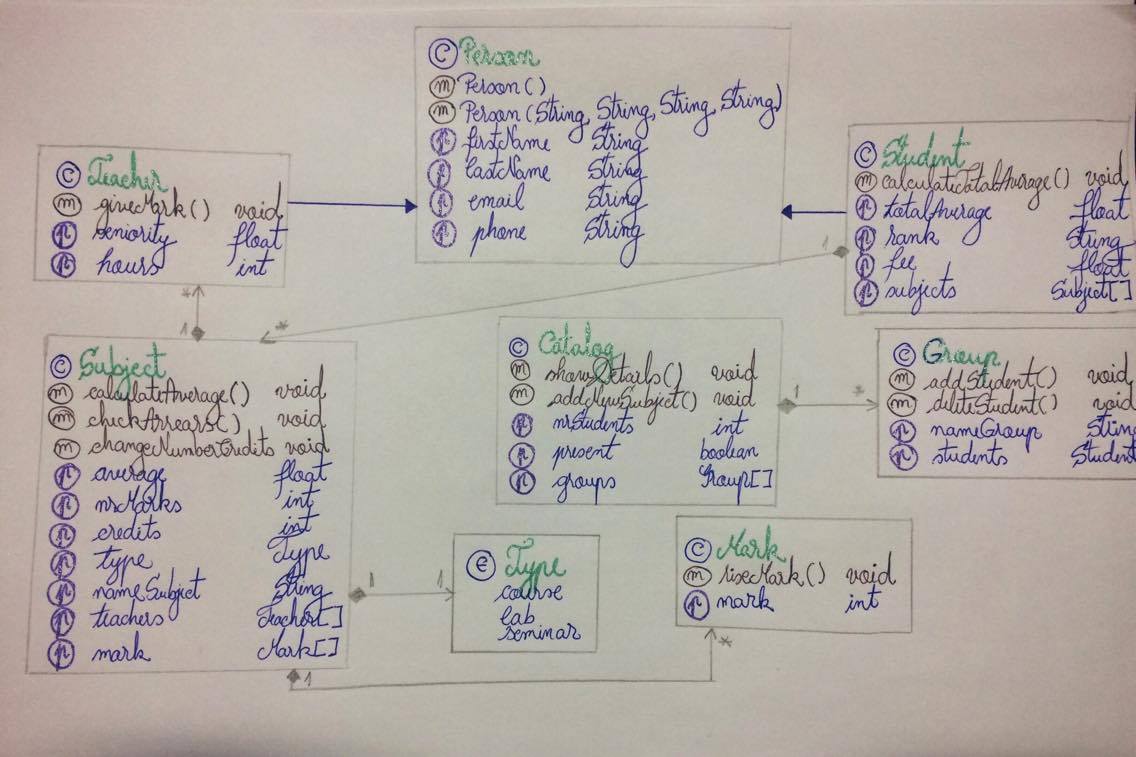 C Person
m Person()
m Person(String, String, String, String)
p firstName String
p lastName String
p email String
p phone String
C Teacher
m giveMark() void
p seniority float
p hours int
C Student
m calculateTotalAverage() void
p totalAverage float
p rank String
p fee float
p subjects Subject[]
1
*
*
1
C Subject
m calculateAverage() void
m checkArrears() void
m changeNumberCredits void
p average float
p nrMarks int
p credits int
p type Type
p nameSubject String
p teachers Teacher[]
p mark Mark[]
C Catalog
m showDetails() void
m addNewSubject() void
p nrStudents int
p present boolean
p groups Group[]
1 *
C Group
m addStudent() void
m deleteStudent() void
p nameGroup Strin
p students Student
1 1
E Type
course
lab
seminar
C Mark
m riseMark() void
p mark int
*
1